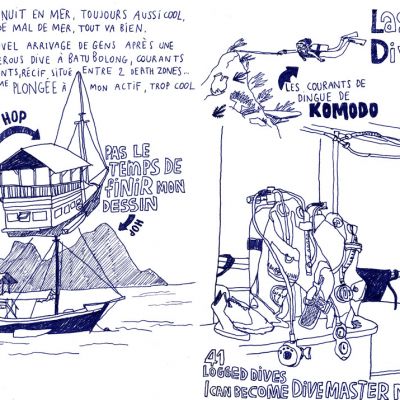 NUIT EN MER, TOUJOURS AUSSI COOL,
DE MAL DE MER, TOUT VA BIEN.
VEL ARRIVAGE DE GENS APRÈS UNE
EROUS DIVE À BATU BOLONG, COURANTS
NTS, RÉCIF SITUÉ ENTRE 2 DEATH ZONES..
ME PLONGÉE À MON ACTIF, TROP COOL
HOP
PAS LE
TEMPS DE
FINIR MON
DESSIN
HOP
LAS
DIVE
LES COURANTS DE
DINGUE DE
KOMODO
41
LOGGED DIVES
I CAN BECOME DIVE MASTER N